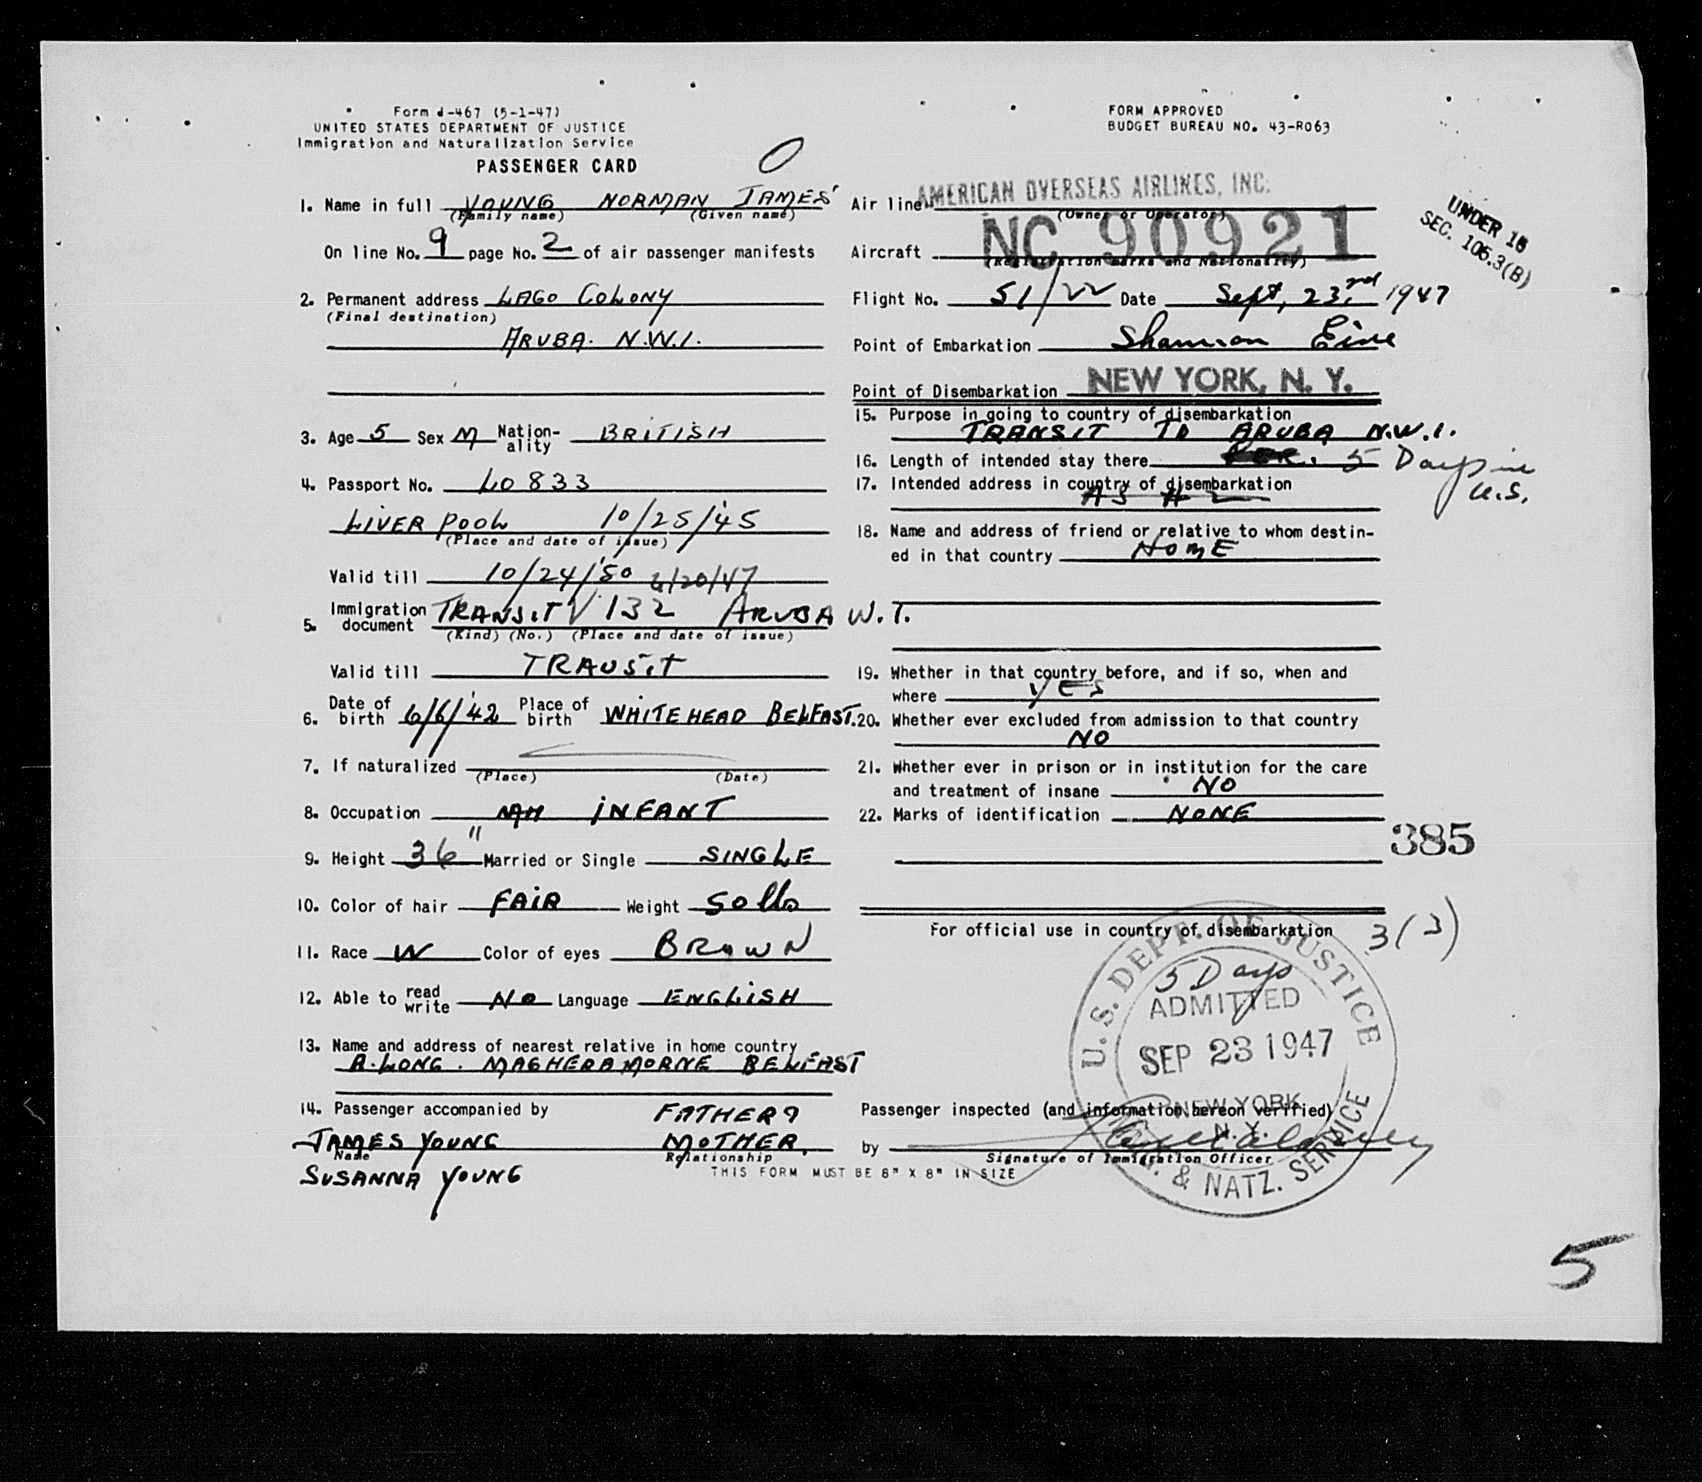 Form I-467 (5-1-47)
UNITED STATES DEPARTMENT OF JUSTICE
Immigration and Naturalization Service
PASSENGER CARD
O
1. Name in full YOUNG NORMAN JAMES
(Family name) (Given name)
On line No. 9 page No. 2 of air passenger manifests
2. Permanent address LAGO COLONY
(Final destination)
ARUBA. N.W.I.
3. Age 5 Sex M Nation-ality BRITISH
4. Passport No. LO 833
LIVERPOOL 10/25/'45
(Place and date of issue)
Valid till 10/24/'50 6/20/47
5. Immigration document TRANSIT V 132 ARUBA W.I.
(Kind) (No.) (Place and date of issue)
Valid till TRANSIT
6. Date of birth 6/6/'42 Place of birth WHITEHEAD BELFAST.
7. If naturalized
(Place) (Date)
8. Occupation INFANT
9. Height 36" Married or Single SINGLE
10. Color of hair FAIR Weight 50 lbs
11. Race W Color of eyes BROWN
12. Able to read write NO Language ENGLISH
13. Name and address of nearest relative in home country
A. LONG. MAGHERAMORNE BELFAST
14. Passenger accompanied by FATHER &
JAMES YOUNG MOTHER.
Name Relationship
SUSANNA YOUNG
THIS FORM MUST BE 8" X 8" IN SIZE
FORM APPROVED
BUDGET BUREAU NO. 43-R063
Air line AMERICAN OVERSEAS AIRLINES, INC.
(Owner or Operator)
Aircraft NC 90921
(Registration marks and Nationality)
UNDER 16
SEC. 105.3(B)
Flight No. 51/22 Date Sept, 23rd 1947
Point of Embarkation Shannon Eire
Point of Disembarkation NEW YORK, N. Y.
15. Purpose in going to country of disembarkation
TRANSIT TO ARUBA N.W.I.
16. Length of intended stay there 5 Days in
U.S.
17. Intended address in country of disembarkation
AS # 2
18. Name and address of friend or relative to whom destin-
ed in that country NONE
19. Whether in that country before, and if so, when and
where YES
20. Whether ever excluded from admission to that country
NO
21. Whether ever in prison or in institution for the care
and treatment of insane NO
22. Marks of identification NONE
385
For official use in country of disembarkation 3(3)
U. S. DEPT. OF JUSTICE
5 Days
ADMITTED
SEP 23 1947
NEW YORK
N. Y.
& NATZ. SERVICE
Passenger inspected (and information hereon verified)
by
Signature of Immigration Officer
5